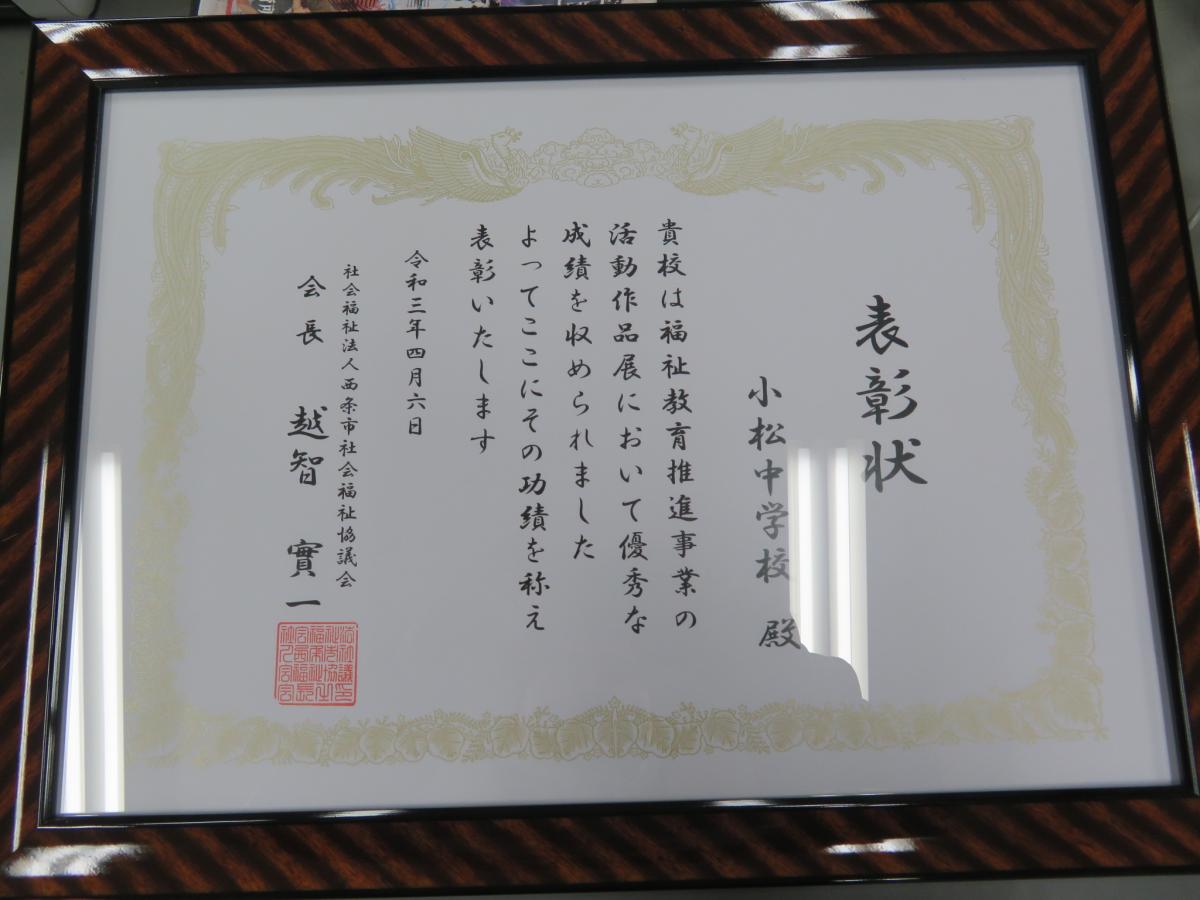 表彰状
小松中学校 殿
貴校は福祉教育推進事業の
活動作品展において優秀な
成績を収められました
よってここにその功績を称え
表彰いたします
令和三年四月六日
社会福祉法人西条市社会福祉協議会
会長 越智 實一